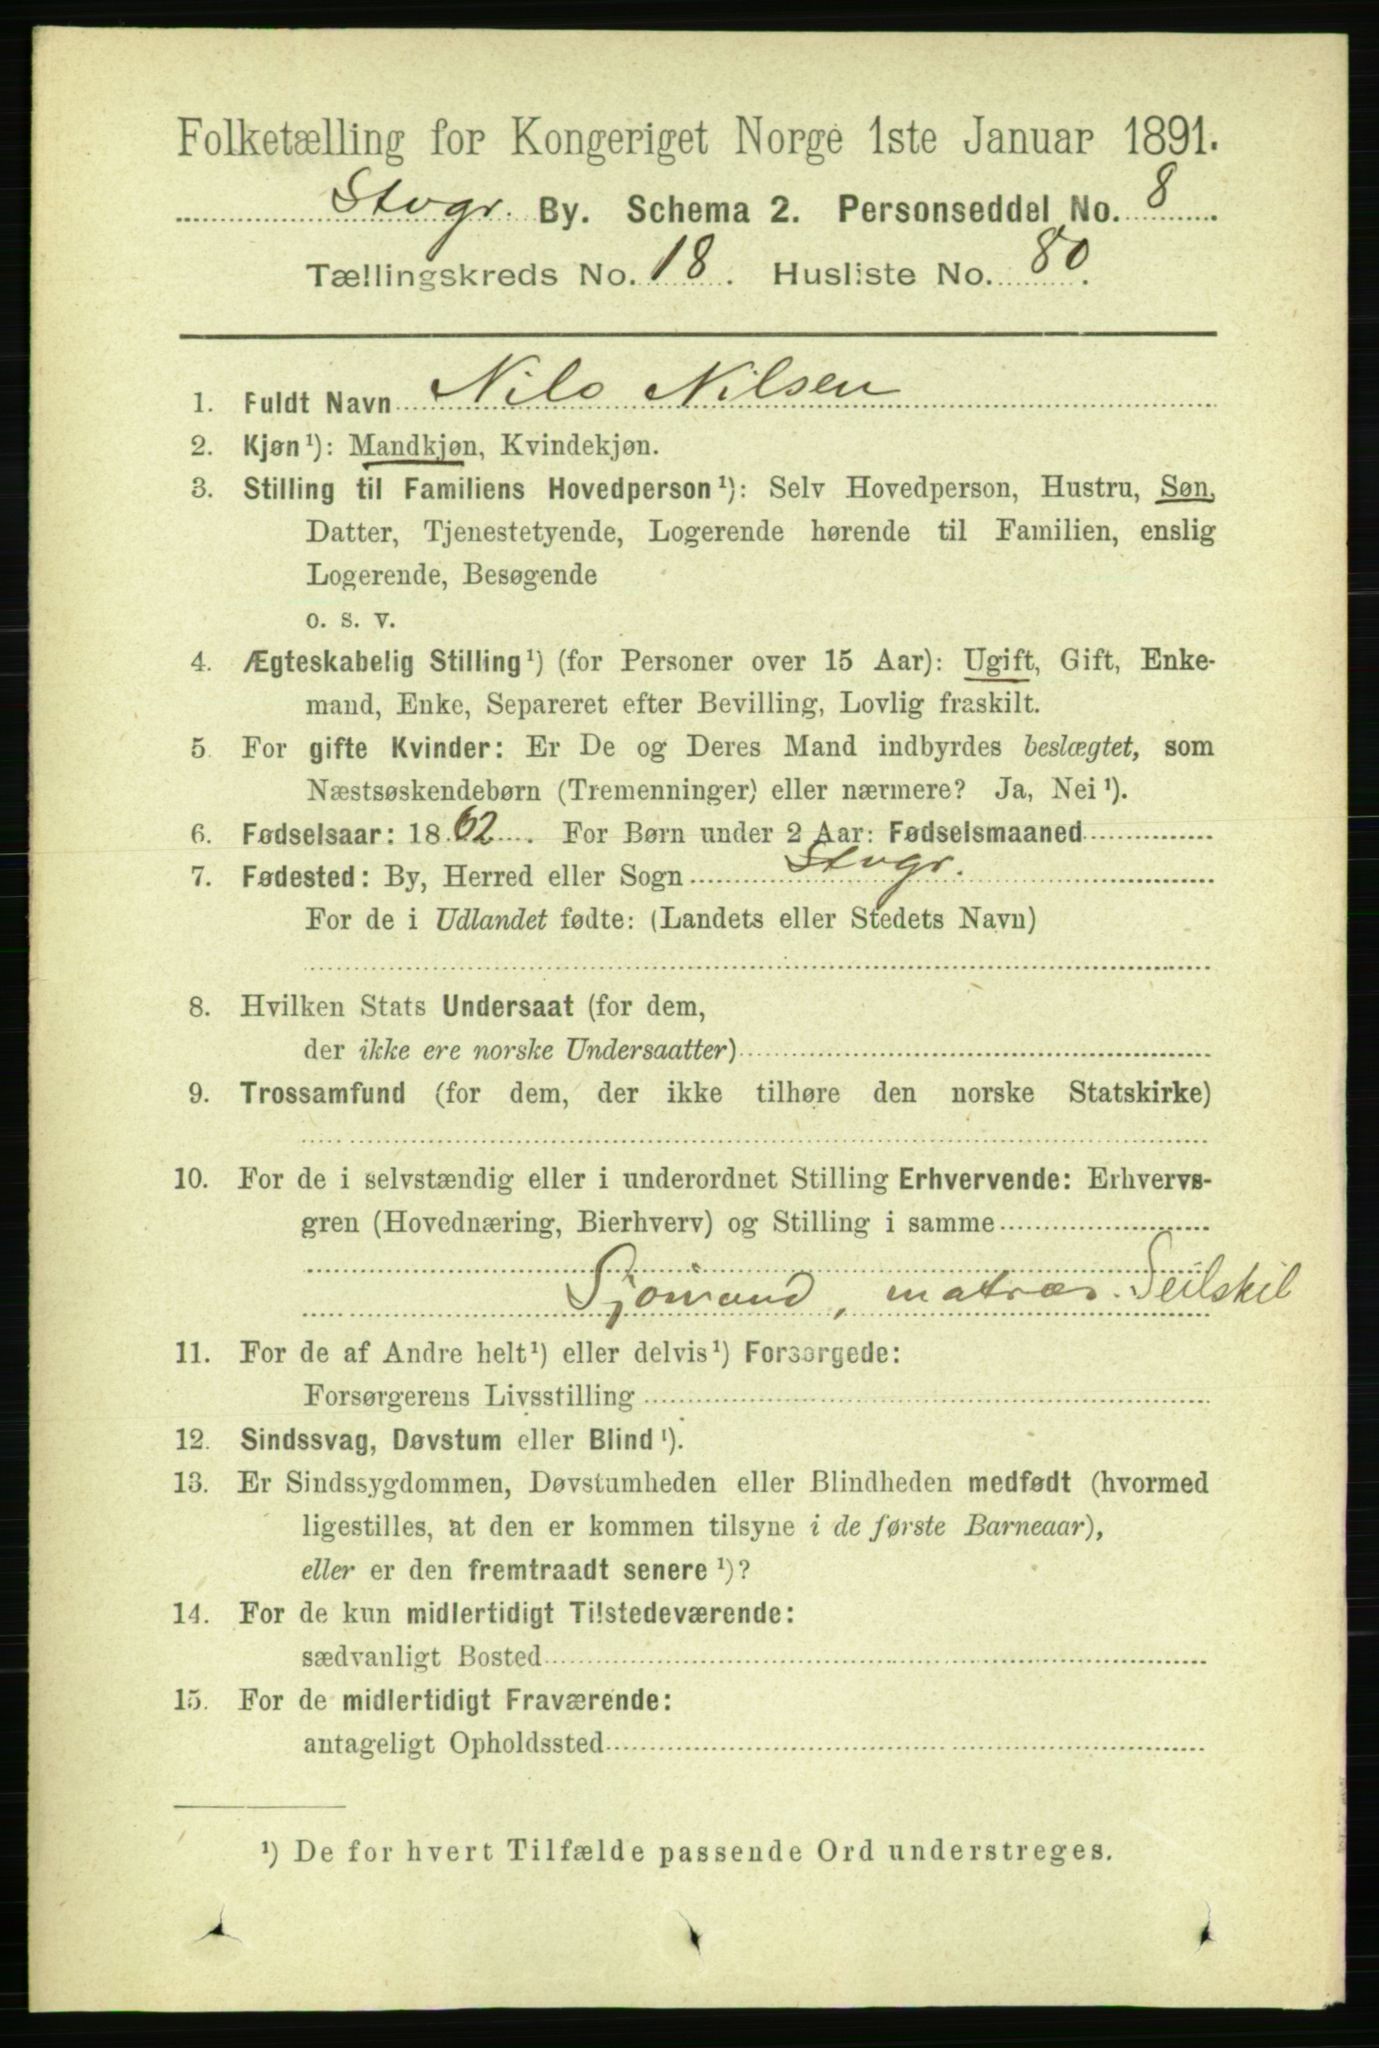 Folketælling for Kongeriget Norge 1ste Januar 1891.
Stvgr. By. Schema 2. Personseddel No. 8
Tællingskreds No. 18. Husliste No. 80.
1. Fuldt Navn Nils Nilsen
2. Kjøn¹): Mandkjøn, Kvindekjøn.
3. Stilling til Familiens Hovedperson¹): Selv Hovedperson, Hustru, Søn,
Datter, Tjenestetyende, Logerende hørende til Familien, enslig
Logerende, Besøgende
o. s. v.
4. Ægteskabelig Stilling¹) (for Personer over 15 Aar): Ugift, Gift, Enke-
mand, Enke, Separeret efter Bevilling, Lovlig fraskilt.
5. For gifte Kvinder: Er De og Deres Mand indbyrdes beslægtet, som
Næstsøskendebørn (Tremenninger) eller nærmere? Ja, Nei¹).
6. Fødselsaar: 1862. For Børn under 2 Aar: Fødselsmaaned
7. Fødested: By, Herred eller Sogn Stvgr.
For de i Udlandet fødte: (Landets eller Stedets Navn)
8. Hvilken Stats Undersaat (for dem,
der ikke ere norske Undersaatter)
9. Trossamfund (for dem, der ikke tilhøre den norske Statskirke)
10. For de i selvstændig eller i underordnet Stilling Erhvervende: Erhvervs-
gren (Hovednæring, Bierhverv) og Stilling i samme
Sjømand, matros. Seilskib
11. For de af Andre helt¹) eller delvis¹) Forsørgede:
Forsørgerens Livsstilling
12. Sindssvag, Døvstum eller Blind¹).
13. Er Sindssygdommen, Døvstumheden eller Blindheden medfødt (hvormed
ligestilles, at den er kommen tilsyne i de første Barneaar),
eller er den fremtraadt senere¹)?
14. For de kun midlertidigt Tilstedeværende:
sædvanligt Bosted
15. For de midlertidigt Fraværende:
antageligt Opholdssted
¹) De for hvert Tilfælde passende Ord understreges.